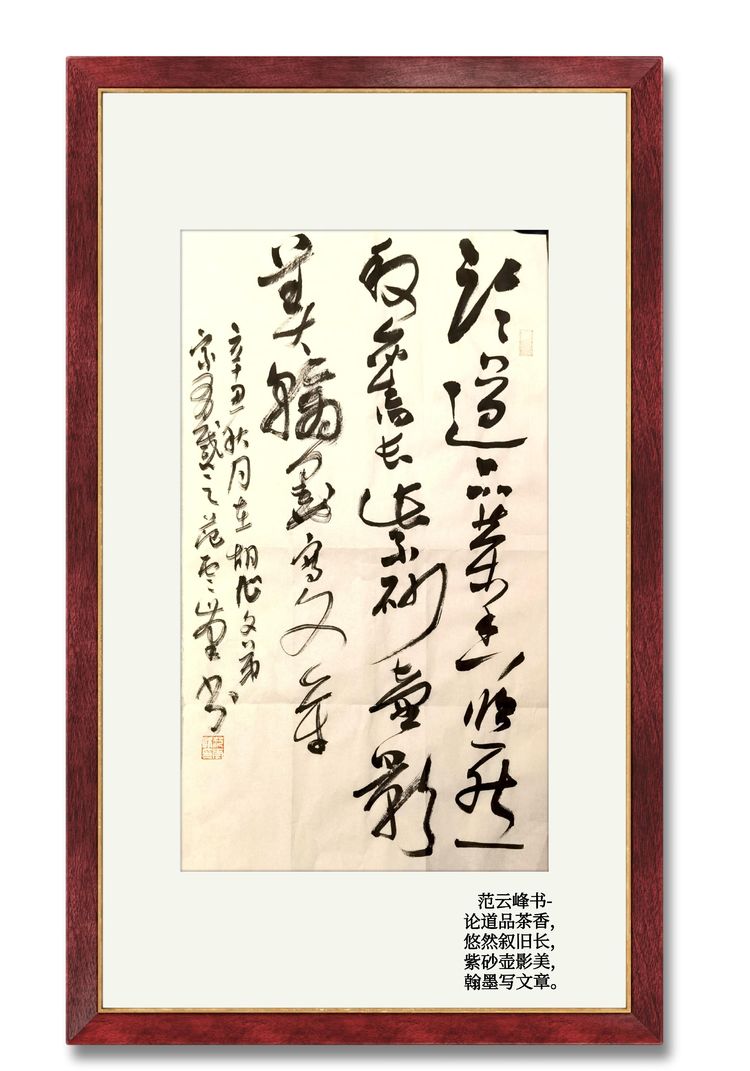 论道品茶香悠然
叙旧长紫砂壶影
美翰墨写文章
辛丑秋月在胡
范云峰书
范云峰书-
论道品茶香，
悠然叙旧长，
紫砂壶影美，
翰墨写文章。